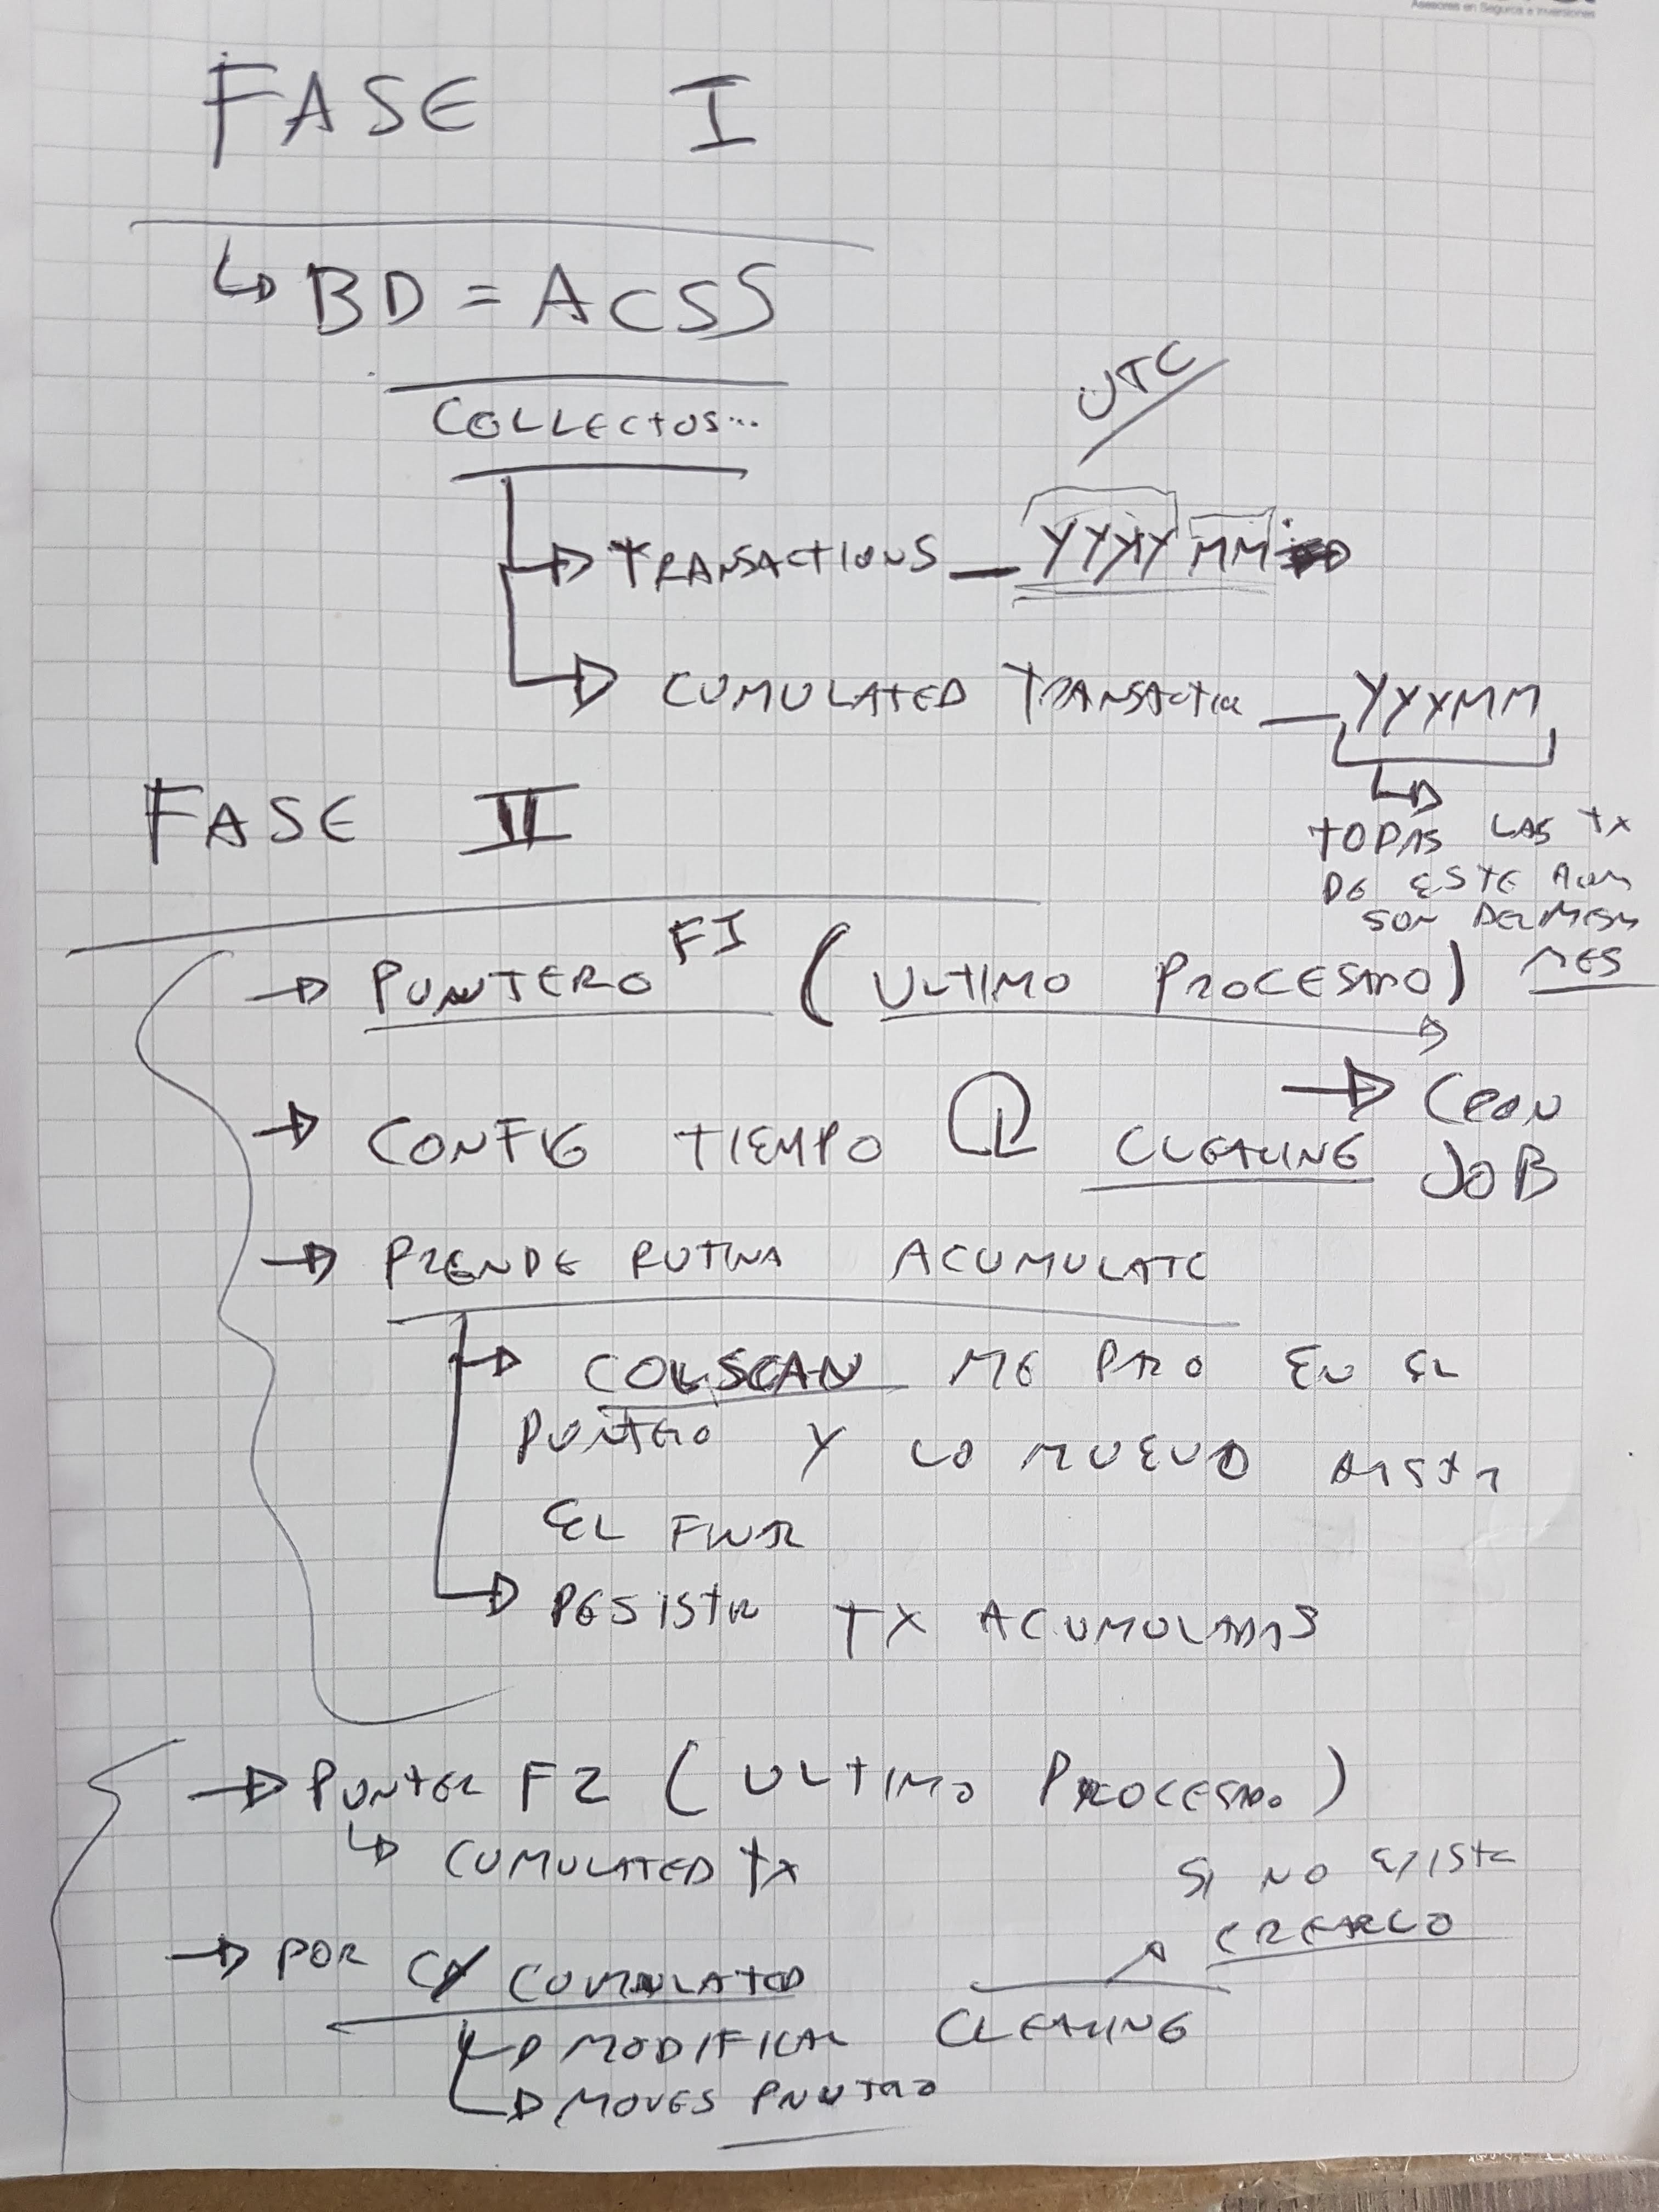 Asesores en Seguros e Inversiones
FASE I
BD = ACSS
COLLECTOS...
UTC
TRANSACTIONS _ YYYYMM
CUMULATED TRANSACTION _ YYYYMM
TODAS LAS TX
DE ESTE ACUM
SON DEL MISM
MES
FASE II
PUNTERO FI (ULTIMO PROCESADO)
CONFIG TIEMPO CLEARING
CRON
JOB
PRENDE RUTINA ACUMULATE
COLSCAN ME PARO EN EL
PUNTERO Y LO MUEVO HASTA
EL FINAL
REGISTR TX ACUMULADAS
PUNTER F2 (ULTIMO PROCESADO)
CUMULATED TX
SI NO EXISTE
CREARLO
POR C/ CUMULATED
MODIFICAR CLEARING
MOVES PUNTERO